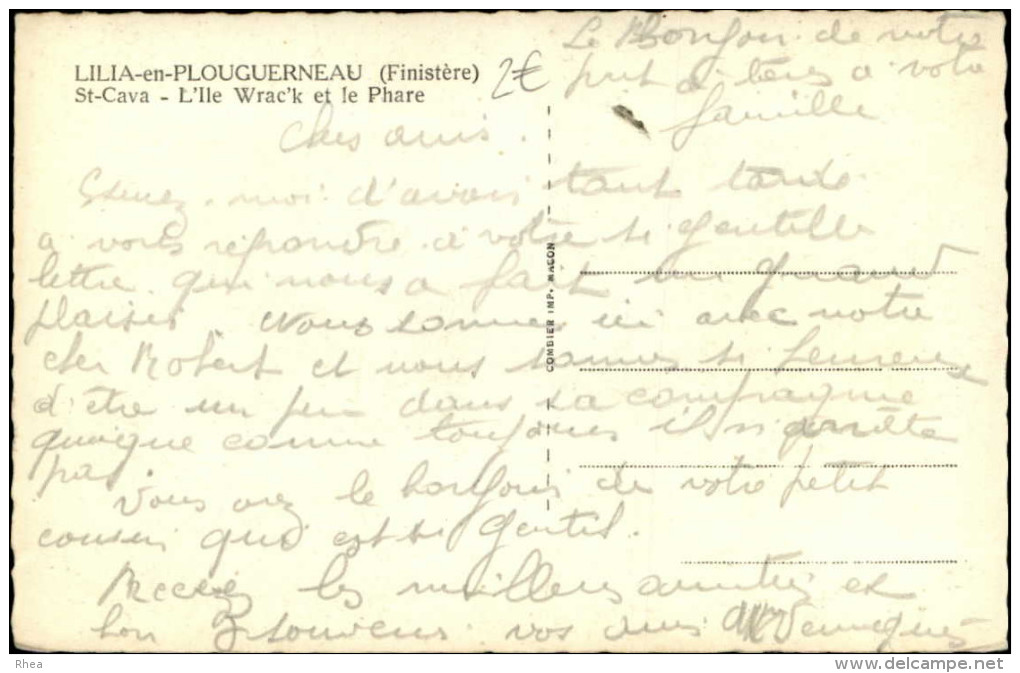 LILIA-en-PLOUGUERNEAU (Finistère)
St-Cava - L'Ile Wrac'k et le Phare
2€
Le Bonjour de votre
à votre
famille
Cher amis.
Excusez-moi d'avoir tant tardé
a vous répondre a votre si gentille
lettre qui nous a fait un grand
plaisir. Nous sommes ici avec notre
cher Robert et nous sommes si heureux
d'être un peu dans sa compagnie
quoique comme toujours il n'arrête
pas.
Vous avez le bonjour de votre petit
cousin qui est si gentil.
Recevez les meilleurs amitiés et
bon souvenir vos amis
COMBIER IMP. MACON
Rhea
www.delcampe.net